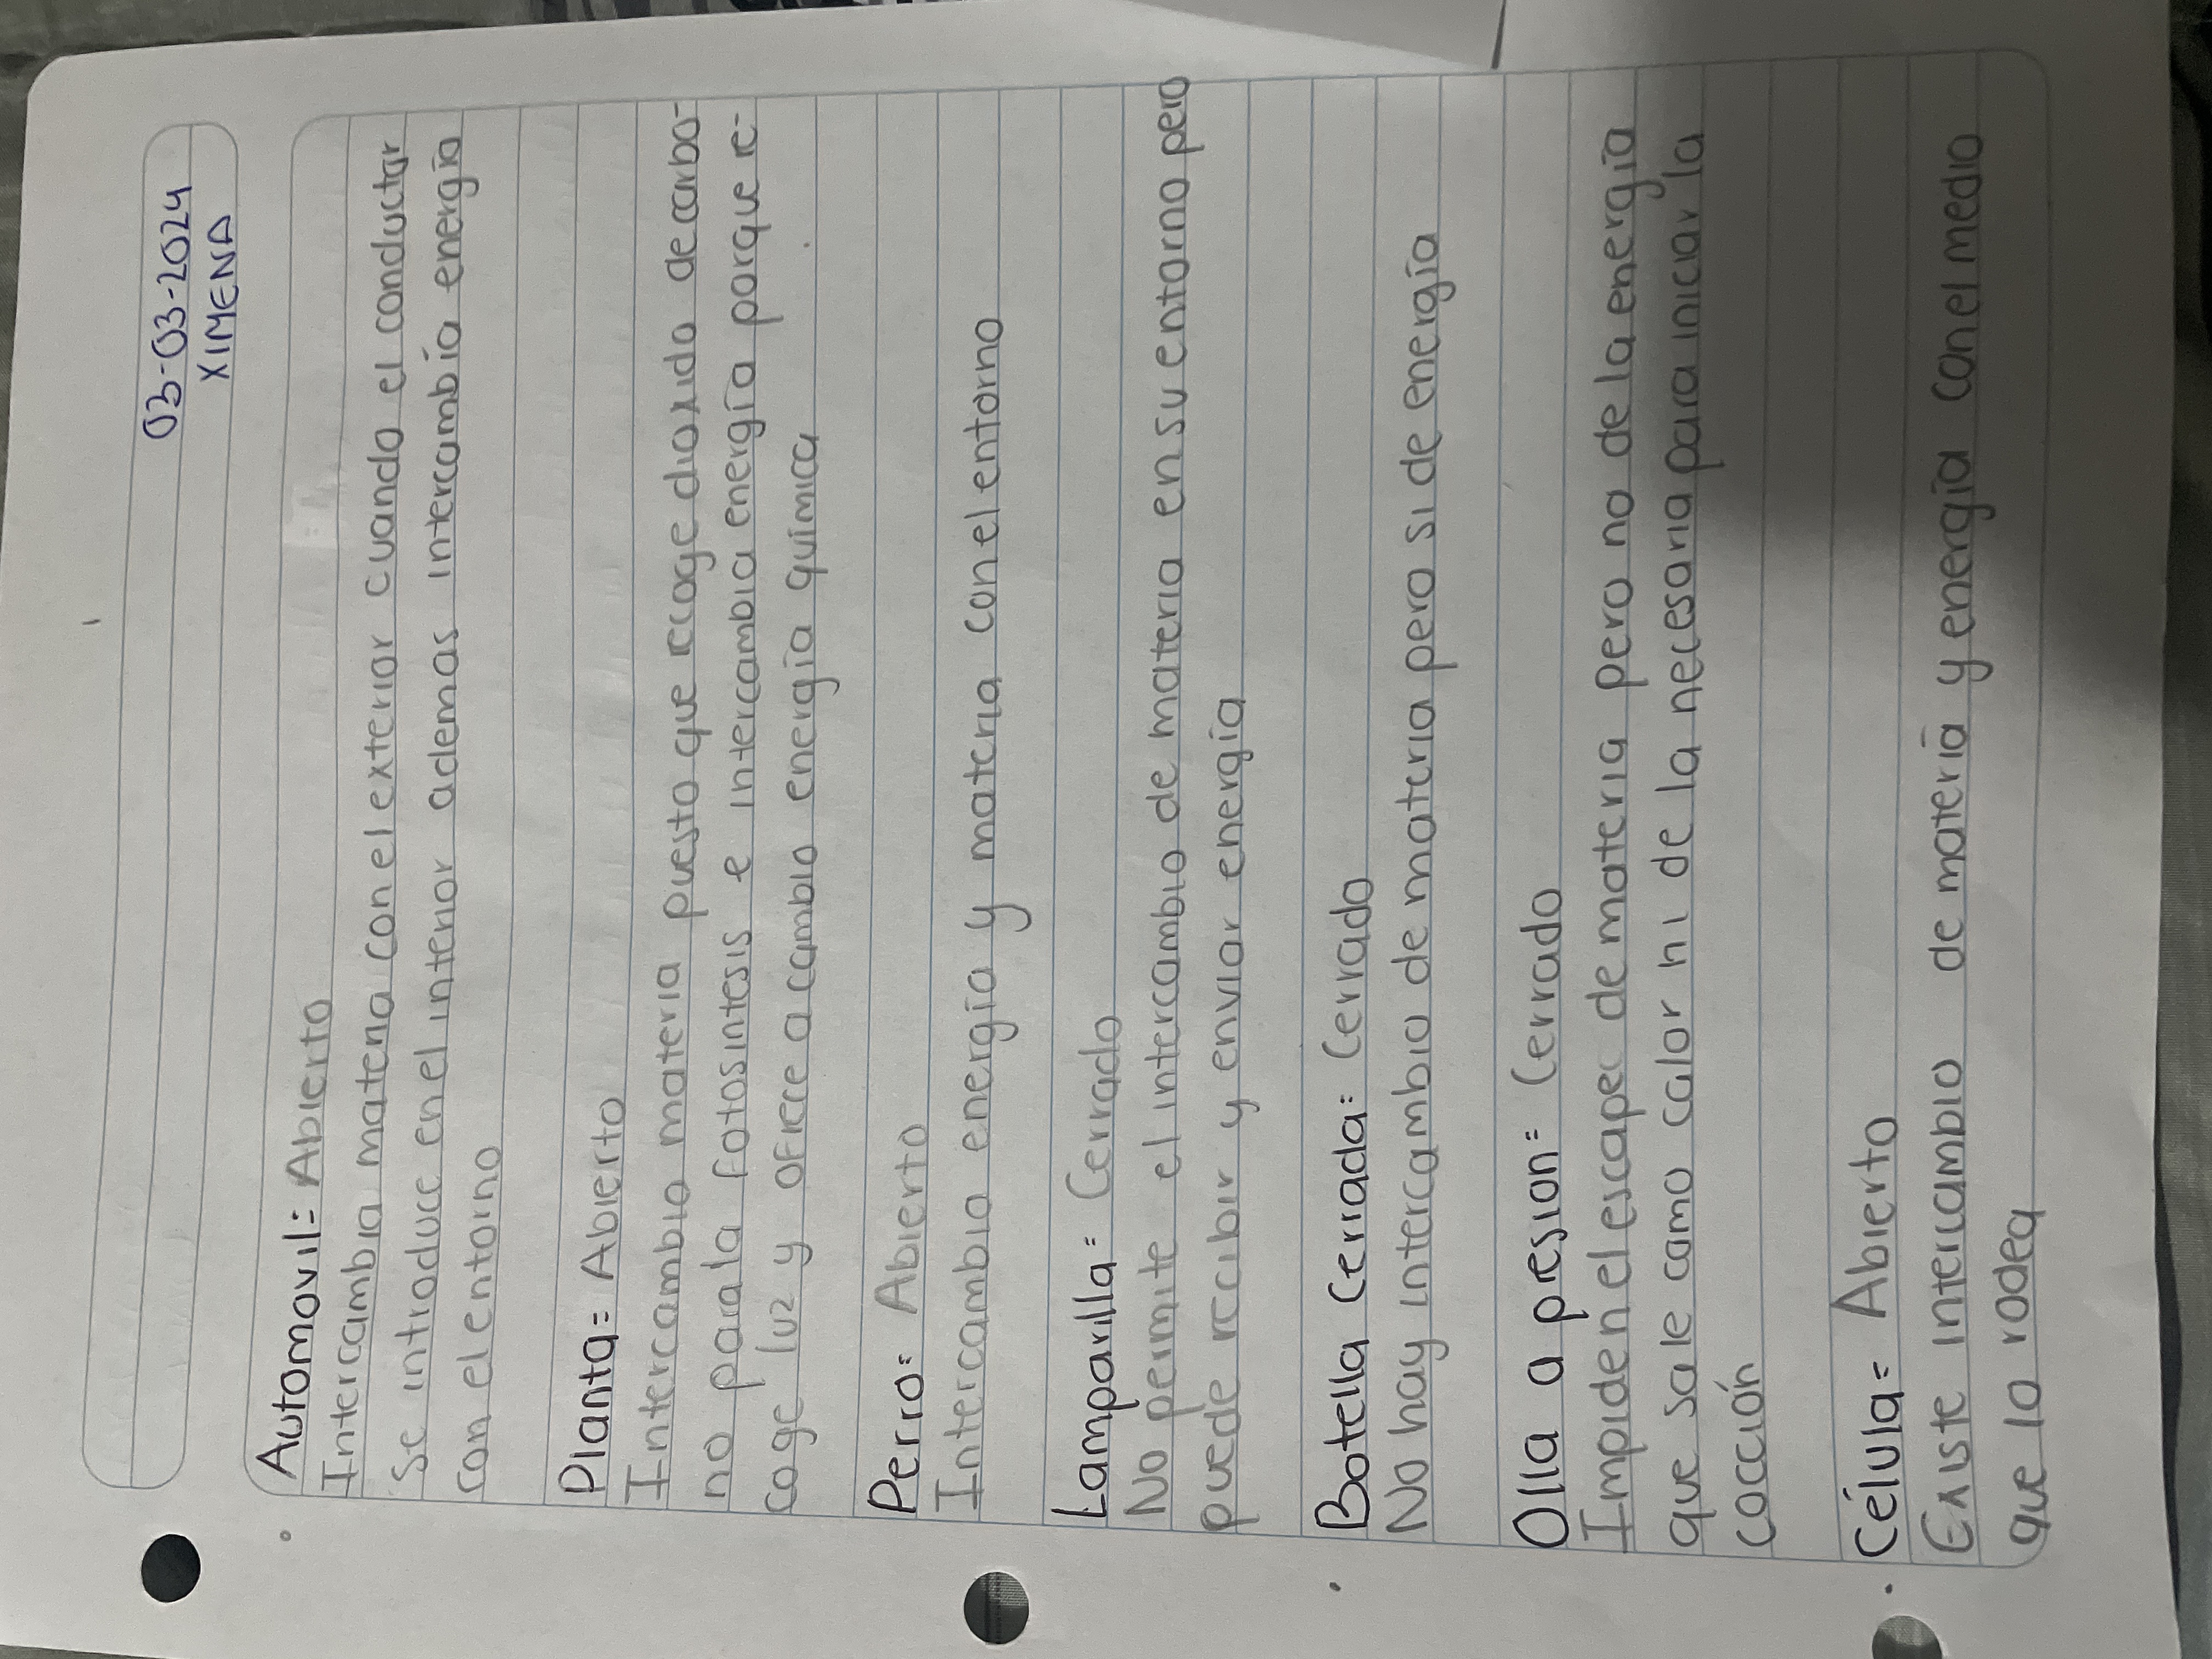 03-03-2024
XIMENA
Automovil= Abierto
Intercambia materia con el exterior cuando el conductor
se introduce en el interior ademas intercambio energía
con el entorno
Planta= Abierto
Intercambio materia puesto que recoge dioxido de carbo-
no para la fotosintesis e intercambia energía porque re-
coge luz y ofrece a cambio energía química
Perro= Abierto
Intercambio energía y materia con el entorno
Lamparilla= Cerrado
No permite el intercambio de materia en su entorno pero
puede recibir y enviar energía
Botella cerrada= Cerrado
No hay intercambio de materia pero si de energía
Olla a presion= Cerrado
Impiden el escape de materia pero no de la energía
que sale como calor ni de la necesaria para iniciar la
cocción
Célula= Abierto
Existe intercambio de materia y energía con el medio
que lo rodea